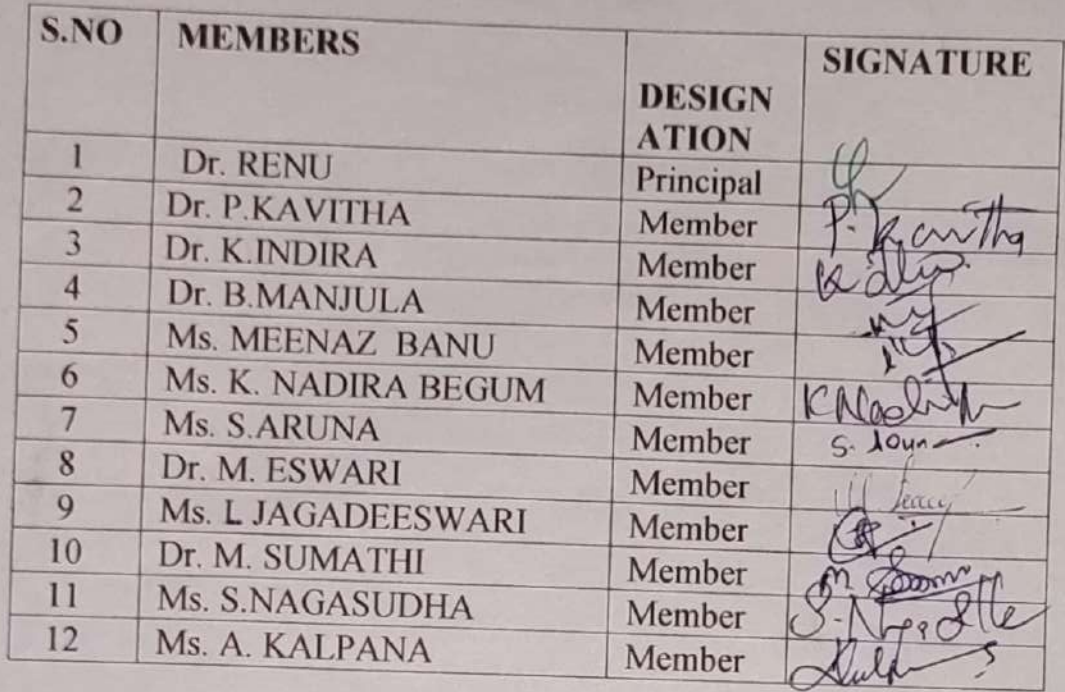 S.NO MEMBERS DESIGN ATION SIGNATURE
1 Dr. RENU Principal
2 Dr. P.KAVITHA Member P. Kavitha
3 Dr. K.INDIRA Member
4 Dr. B.MANJULA Member
5 Ms. MEENAZ BANU Member
6 Ms. K. NADIRA BEGUM Member
7 Ms. S.ARUNA Member
8 Dr. M. ESWARI Member
9 Ms. L JAGADEESWARI Member
10 Dr. M. SUMATHI Member
11 Ms. S.NAGASUDHA Member
12 Ms. A. KALPANA Member